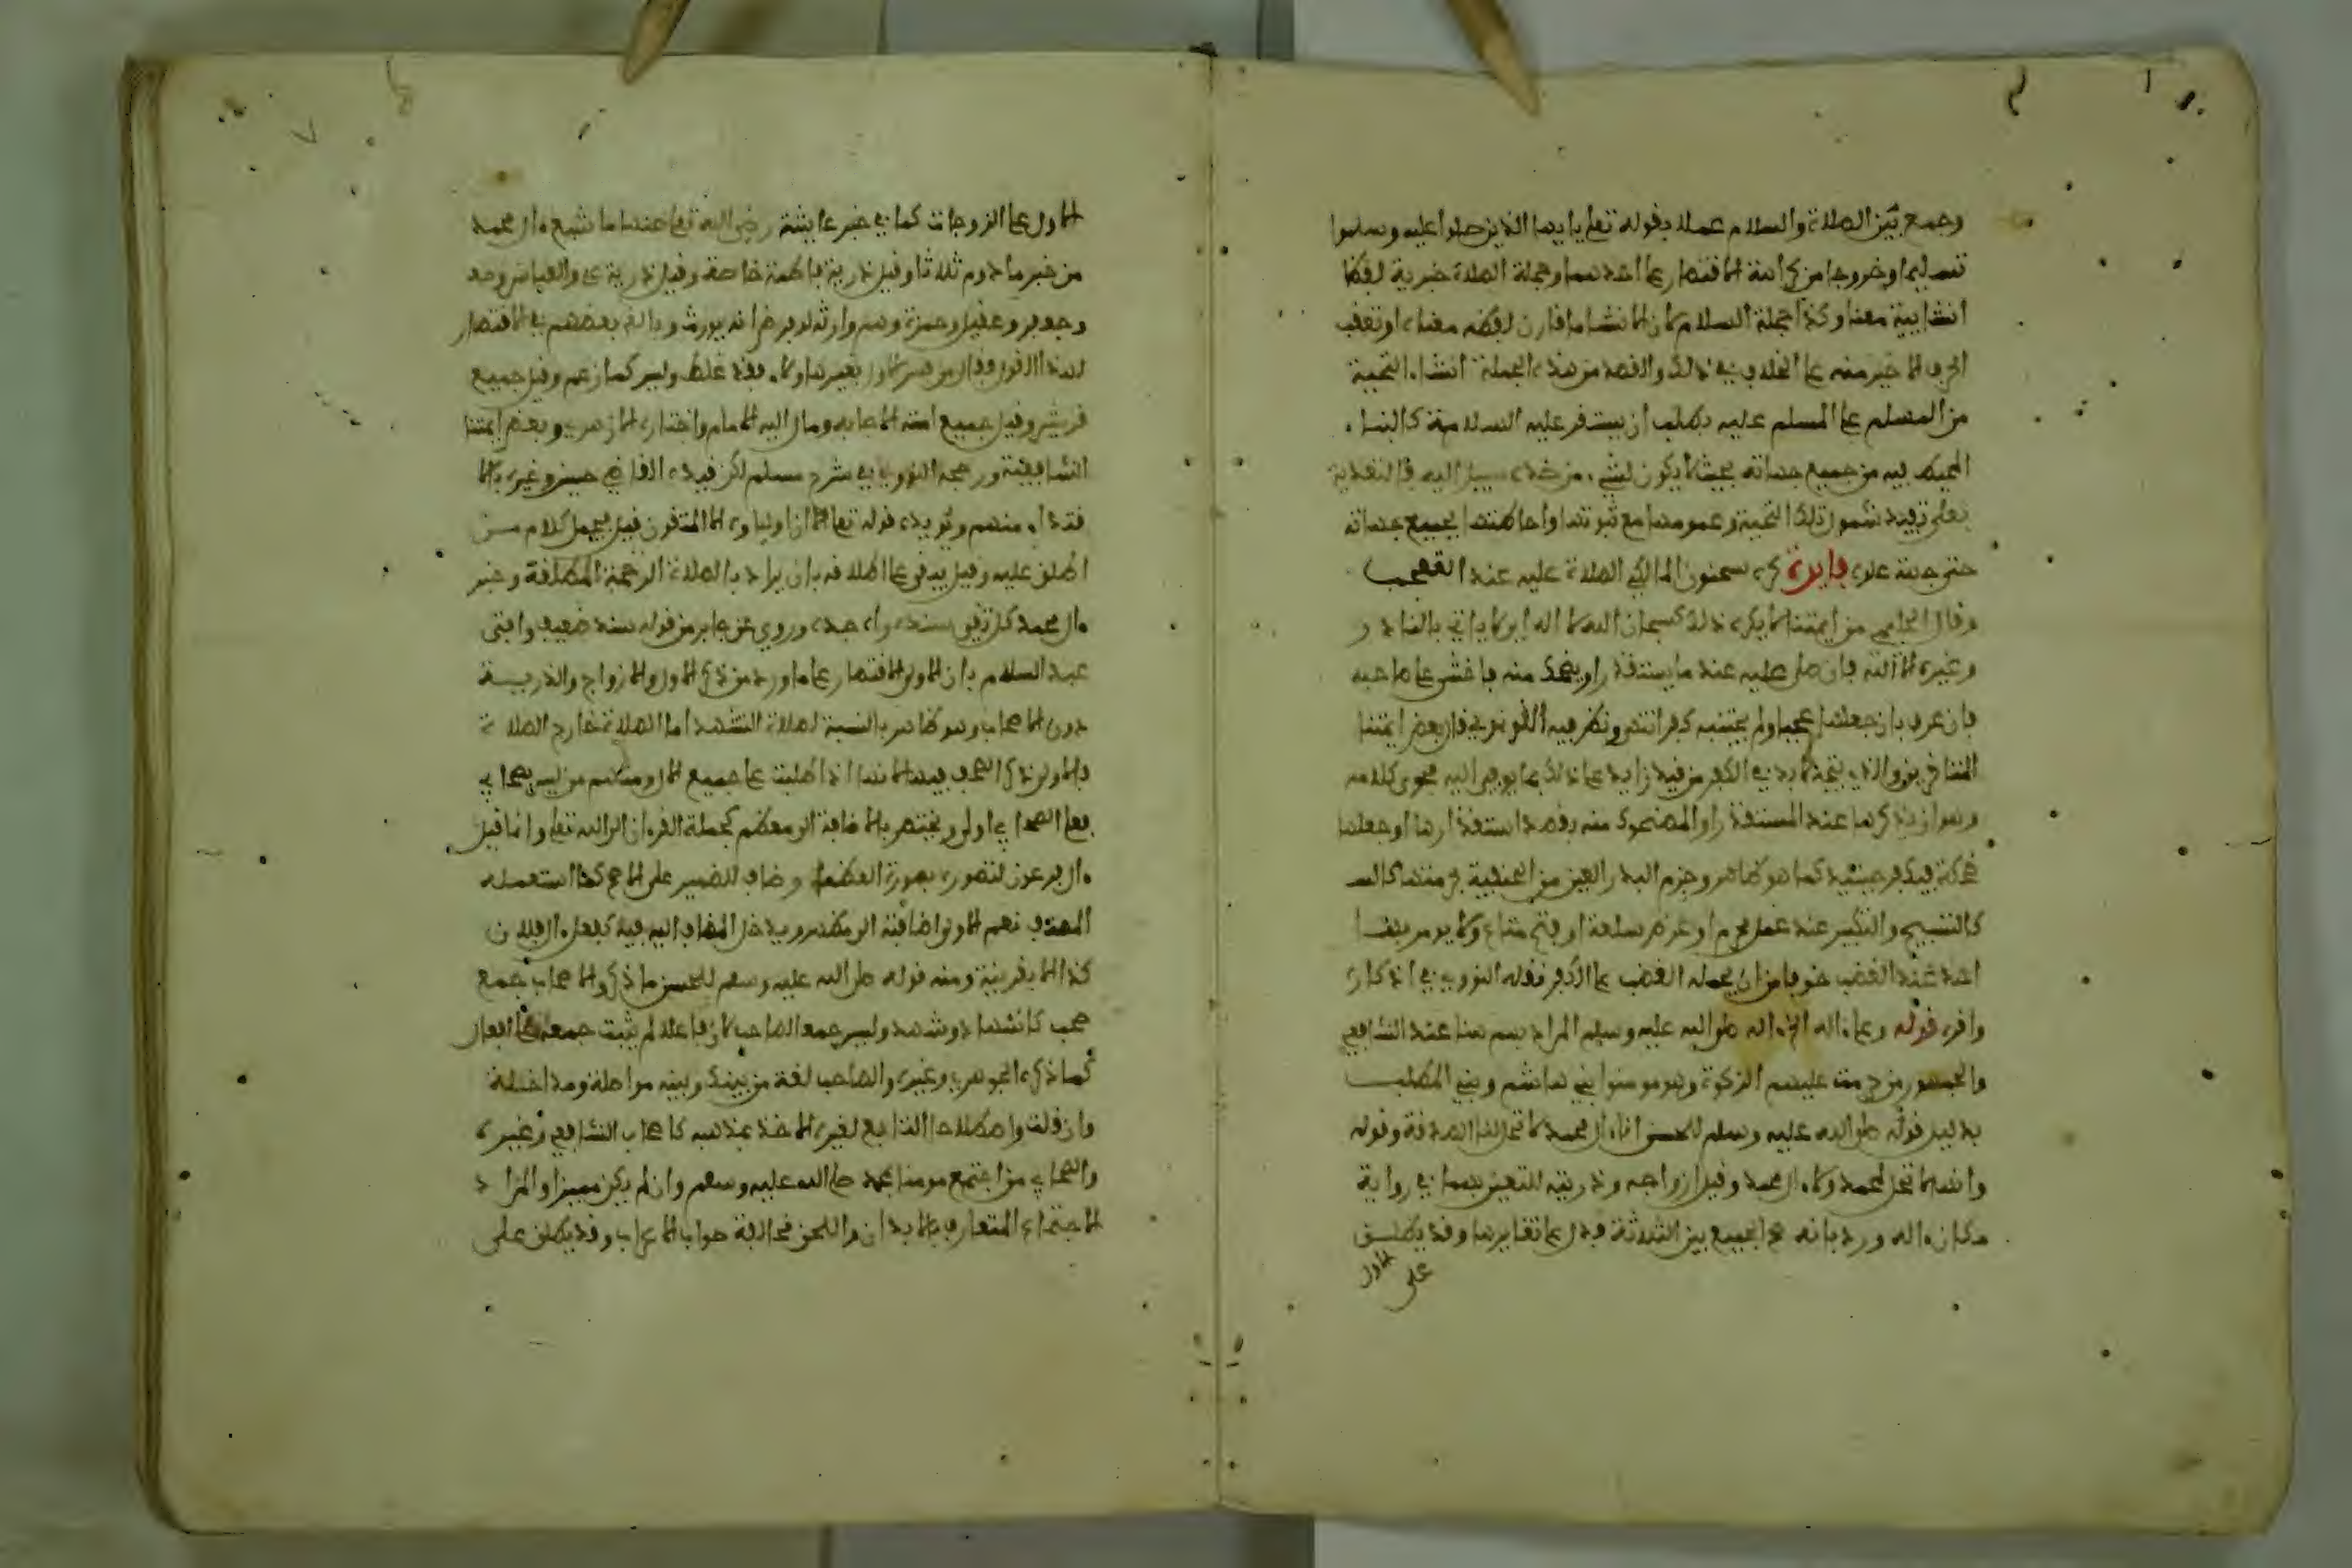 وجمع بين الصلاة والسلام عملا بقوله تعلى يايها الذين صلوا عليه وسلموا
تسليما وخروجا من كراهة الاقتصار على احدهما وجملة الصلاة خبرية لفظا
انشايية معنا وكذا جملة السلام لان الانشا ما قارن لفظه معناه او تعقب
اخر في الاخير منه على الخلاف في ذلك والقصد من هذه الجملة انشاء التحية
من المسلم على المسلم عليه بطلب ان يستقر عليه السلامة كالنساء
المحيط فيه من جميع جهاته بحيث لا يكون لشيء من ضده سبيل اليه فالتعدية
بعلى تفيد شمول تلك التحية وعمومها مع ثبوتها واحاطتها بجميع جهاته
حتى جهة علوه فايدة كره سحنون المالكي الصلاة عليه عند التعجب
وقال الحليمي من ايمتنا لا يكره ذلك كسبحان الله لا اله اي لا ياتي بالنادر
وغيره الا الله فان صلى عليه عند ما يستقذر او يضحك منه فاخشى على صاحبه
فان عرف بان جعلها عجبا ولم يجتنبه كفر انتهى ونظر فيه القونوي قال بعض ايمتنا
المتاخرين والذي يتجه لا بد في الكفر من قيد زايد على ذلك بما يومى اليه فحوى كلامه
وهو ان يذكرها عند المستقذر او المضحوك منه بقصد استقذارها او جعلها
ضحكة فيكفر حينيذ كما هو ظاهر وجزم البدر العيني من الحنفية
كالتسبيح والتكبير عند عمل محرم او عرض سلعة او فتح متاع ولا يومر بها
احد عند الغضب خوفا من ان يحمله الغضب على الكفر نقله النووي في اذكاره
واقره قوله وعلى ءاله الخ ءاله صلى الله عليه وسلم المراد بهم هنا عند الشافعي
والجمهور من حرمت عليهم الزكوة وهم مومنوا بني هاشم وبني المطلب
بدليل قوله صلى الله عليه وسلم للحسن انا ءال محمد لا تحل لنا الصدقة وقوله
وانها لا تحل لمحمد ولا ءال محمد وقيل ازواجه وذريته للتعيين بهما في رواية
مكان ءاله ورد بانه صح الجمع بين الثلاثة فدل على تغايرها وقد يطلق
على الاول
الاول على الزوجات كما في خبر عايشة رضي الله تعلى عنها ما شبع ءال محمد
من خبز مادوم ثلاثا وقيل ذرية فاطمة خاصة وقيل ذرية علي والعباس
وجعفر وعقيل وحمزة وهم وارثه لو فرض انه يورث وبالغ بعضهم في الاقتصار
لهذا القول فقال من فسر الاول بغير هاولاء فقد غلط وليس كما زعم وقيل جميع
قريش وقيل جميع امته الاجابه ومال اليه الامام واختاره الازهري وبعض ايمتنا
الشافعية ورجحه النووي في شرح مسلم لكن قيده القاضي حسين وغيره بالا
تقياء منهم ويويده قوله تعلى ان اولياوه الا المتقون قيل يحمل كلام من
اطلق عليه وقيل يبقى على اطلاقه بان يراد بالصلاة الرحمة المطلقة وخبر
ءال محمد كل تقي سنده واه جدا وروي عن جابر من قوله بسند ضعيف وافتى
عبد السلام بان الاولى الاقتصار على ما ورد من ذكر الال والازواج والذرية
دون الاصحاب وهو ظاهر بالنسبة لصلاة التشهد اما الصلاة خارج الصلاة
فالاولى ذكر الصحب فيها لانها اذا طلبت على جميع الال ومنهم من ليس بصحابي
فعلى الصحابي اولى ويختص بالاضافة الى معظم كجملة القرءان ال الله تعلى وانما قيل
ءال فرعون لتصوره بصورة العظماء ويضاف للضمير على الاصح كما استعمله
المصنف نعم الاولى اضافته الى مظهر ويدخل المضاف اليه فيه كفعل ءال فلان
كذا الا بقرينة ومنه قوله صلى الله عليه وسلم للحسن ما ذكر والاصحاب جمع
صحب كاشهاد وشهد وليس جمعا لصاحب لان فاعلا لم يثبت جمعه على افعال
كما ذكره الجوهري وغيره والصاحب لغة من بينك وبينه مواصلة ومداخلة
وان قلت واصطلاحا التابع لغيره الاخذ بمذهبه كاصحاب الشافعي وغيره
والصحابي من اجتمع مومنا بمحمد صلى الله عليه وسلم وان لم يكن مميزا والمراد
الاجتماع المتعارف بالابدان واللحن مخالفة صواب الاعراب وقد يطلق على